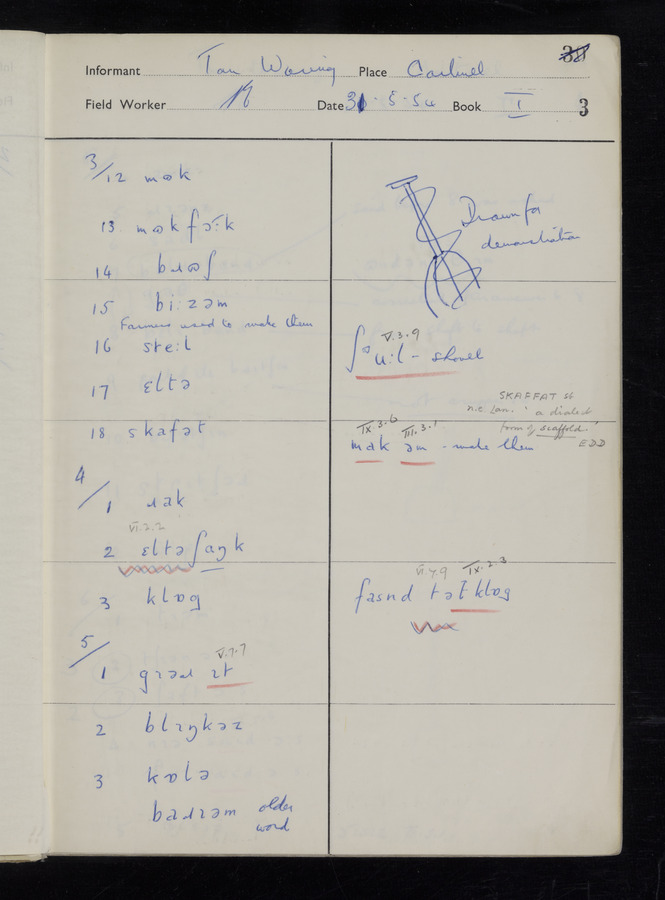 Informant Tom Waring Place Cartmel 30
Field Worker Date 31·5·54 Book I 3
3/12 mʊk
13 mʊk
14 bɹʊʃ
15 bi:zəm
Farmers used to make them
16 ste:l
17 ɛltə
18 skafət
4/1 ɹak
VI.2.2
2 ɛltəʃaŋk
3 klɒg
5/
V.7.7
1 ɪt
2 blɪŋkəz
3 kɒlə
baɹɪəm older
word
Drawn for
demonstration
V.3.9
- shovel
SKAFFAT sb
n.c. Lan. 'a dialect
form of scaffold.'
EDD
IX.3.6 III.3.1
mak əm - make them
VI.4.9 IX.2.3
klɒg